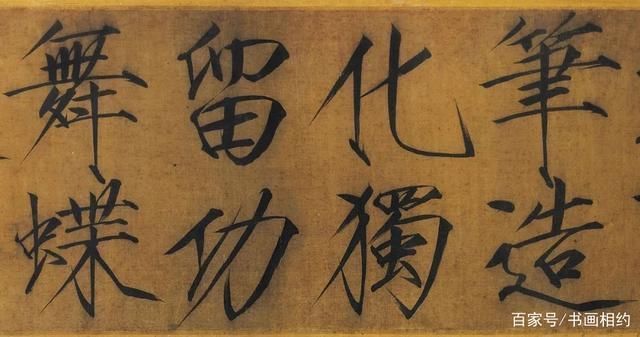 筆造
化獨
留功
舞蝶
百家号/书画相约